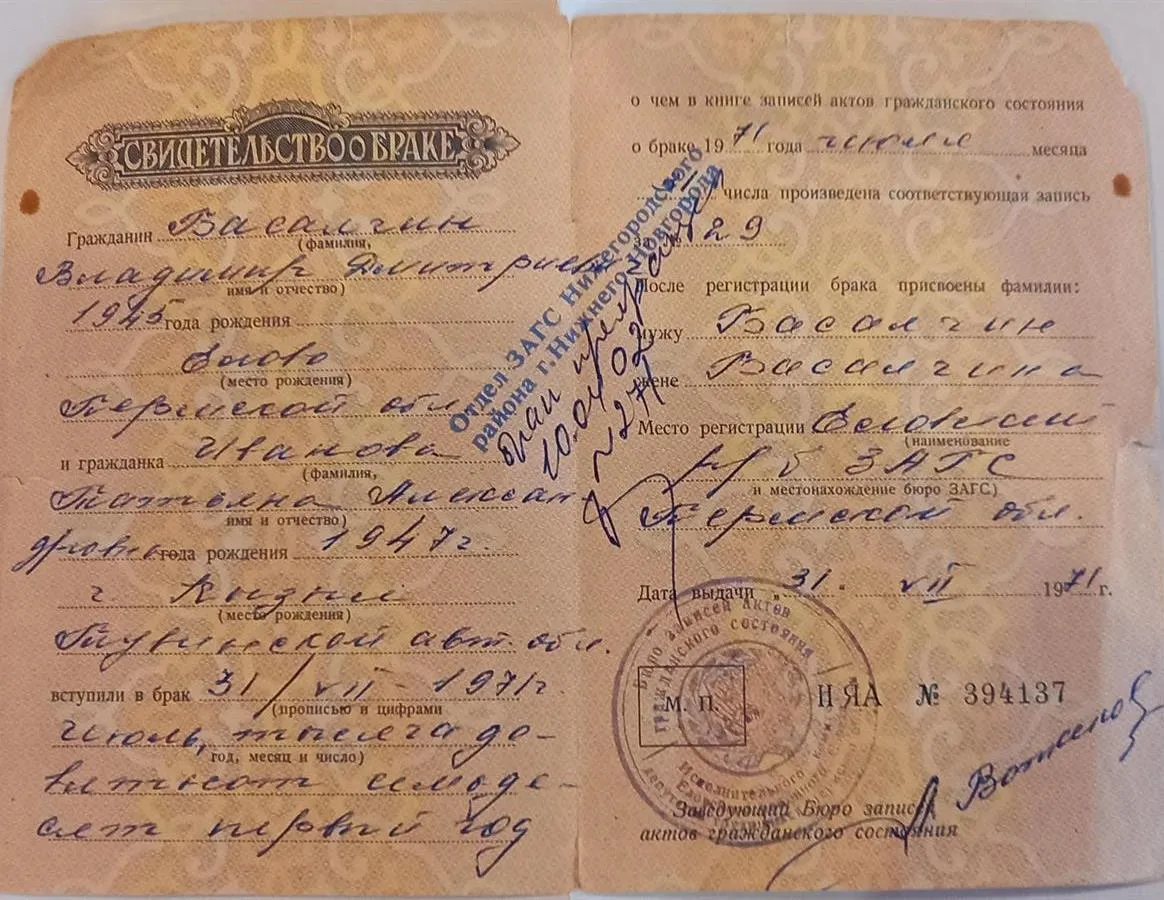 СВИДЕТЕЛЬСТВО О БРАКЕ
Гражданин Васалчин
(фамилия,
Владимир Дмитриев
имя и отчество)
1945 года рождения
Елово
(место рождения)
Пермской обл.
и гражданка Иванова
(фамилия,
Татьяна Алексан-
имя и отчество)
дровна года рождения 1947 г.
г. Кызыл
(место рождения)
Тувинской авт. обл.
вступили в брак 31/VII - 1971г.
(прописью и цифрами
Июль, тысяча де-
год, месяц и число)
вятьсот семьде-
сят первый год
о чем в книге записей актов гражданского состояния
о браке 1971 года июля месяца
числа произведена соответствующая запись
за № 29
После регистрации брака присвоены фамилии:
мужу Васалчин
жене Васалчина
Место регистрации Еловский
(наименование
р/б ЗАГС
и местонахождение бюро ЗАГС)
Пермской обл.
Дата выдачи „31" VII 1971 г.
М. П.
НЯА № 394137
Заведующий Бюро записей
актов гражданского состояния
Отдел ЗАГС Нижегородского
района г. Нижнего Новгорода
брак прекращен
10.04.02
Бюро записей актов
гражданского состояния
Исполнительного